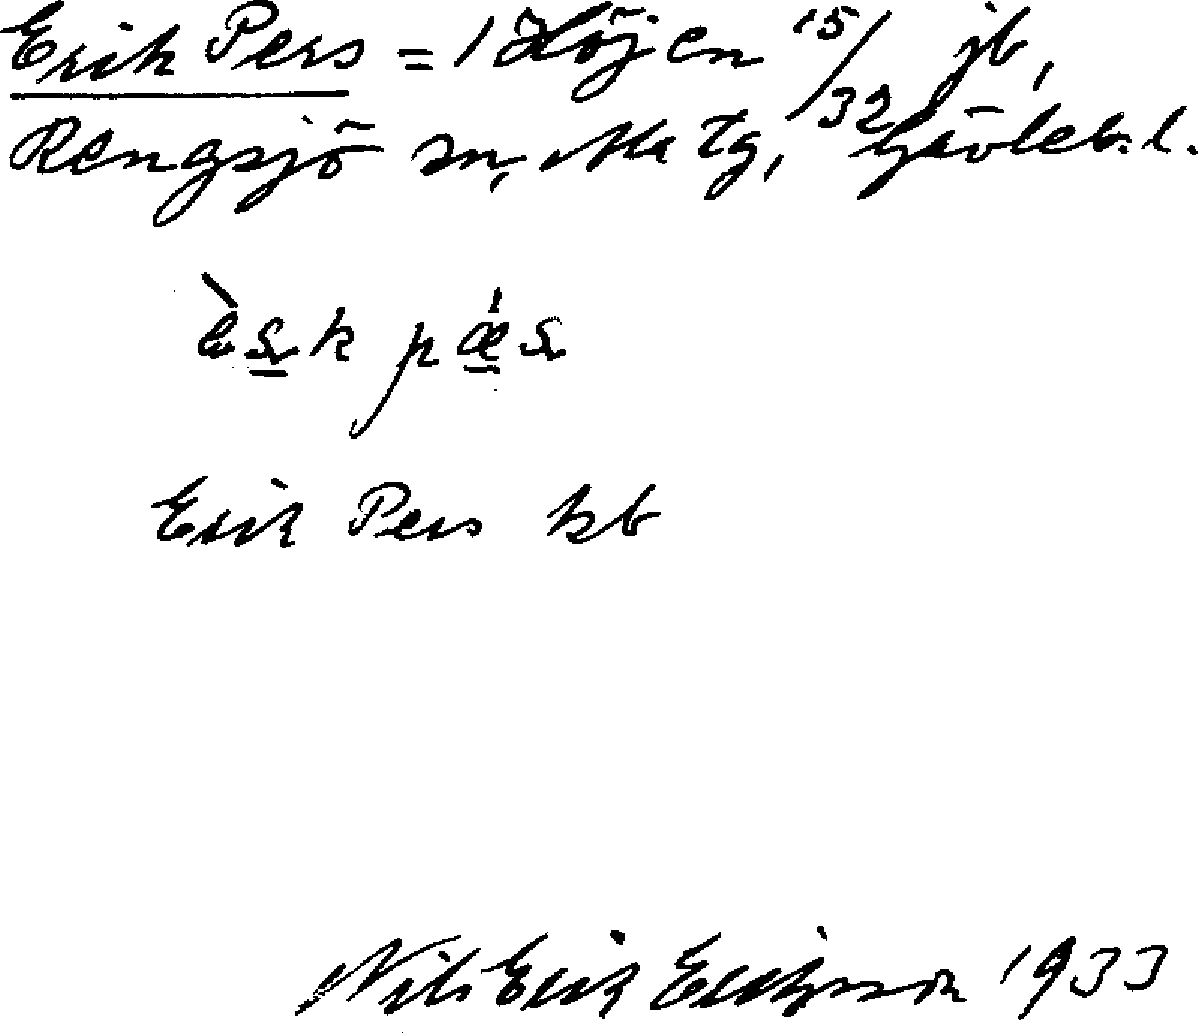 Erik Pers = 1 Höjen 15/32 jb,
Rengsjö sn, Ala tg, Gävleb. l.
Erik Pers kb
Nils Erik Eriksson 1933